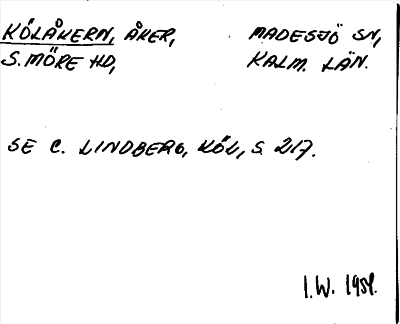 KÖLÅKERN, ÅKER, MADESJÖ SN,
S. MÖRE HD, KALM. LÄN.
SE C. LINDBERG, KÖL, S. 217.
I.W. 1951.